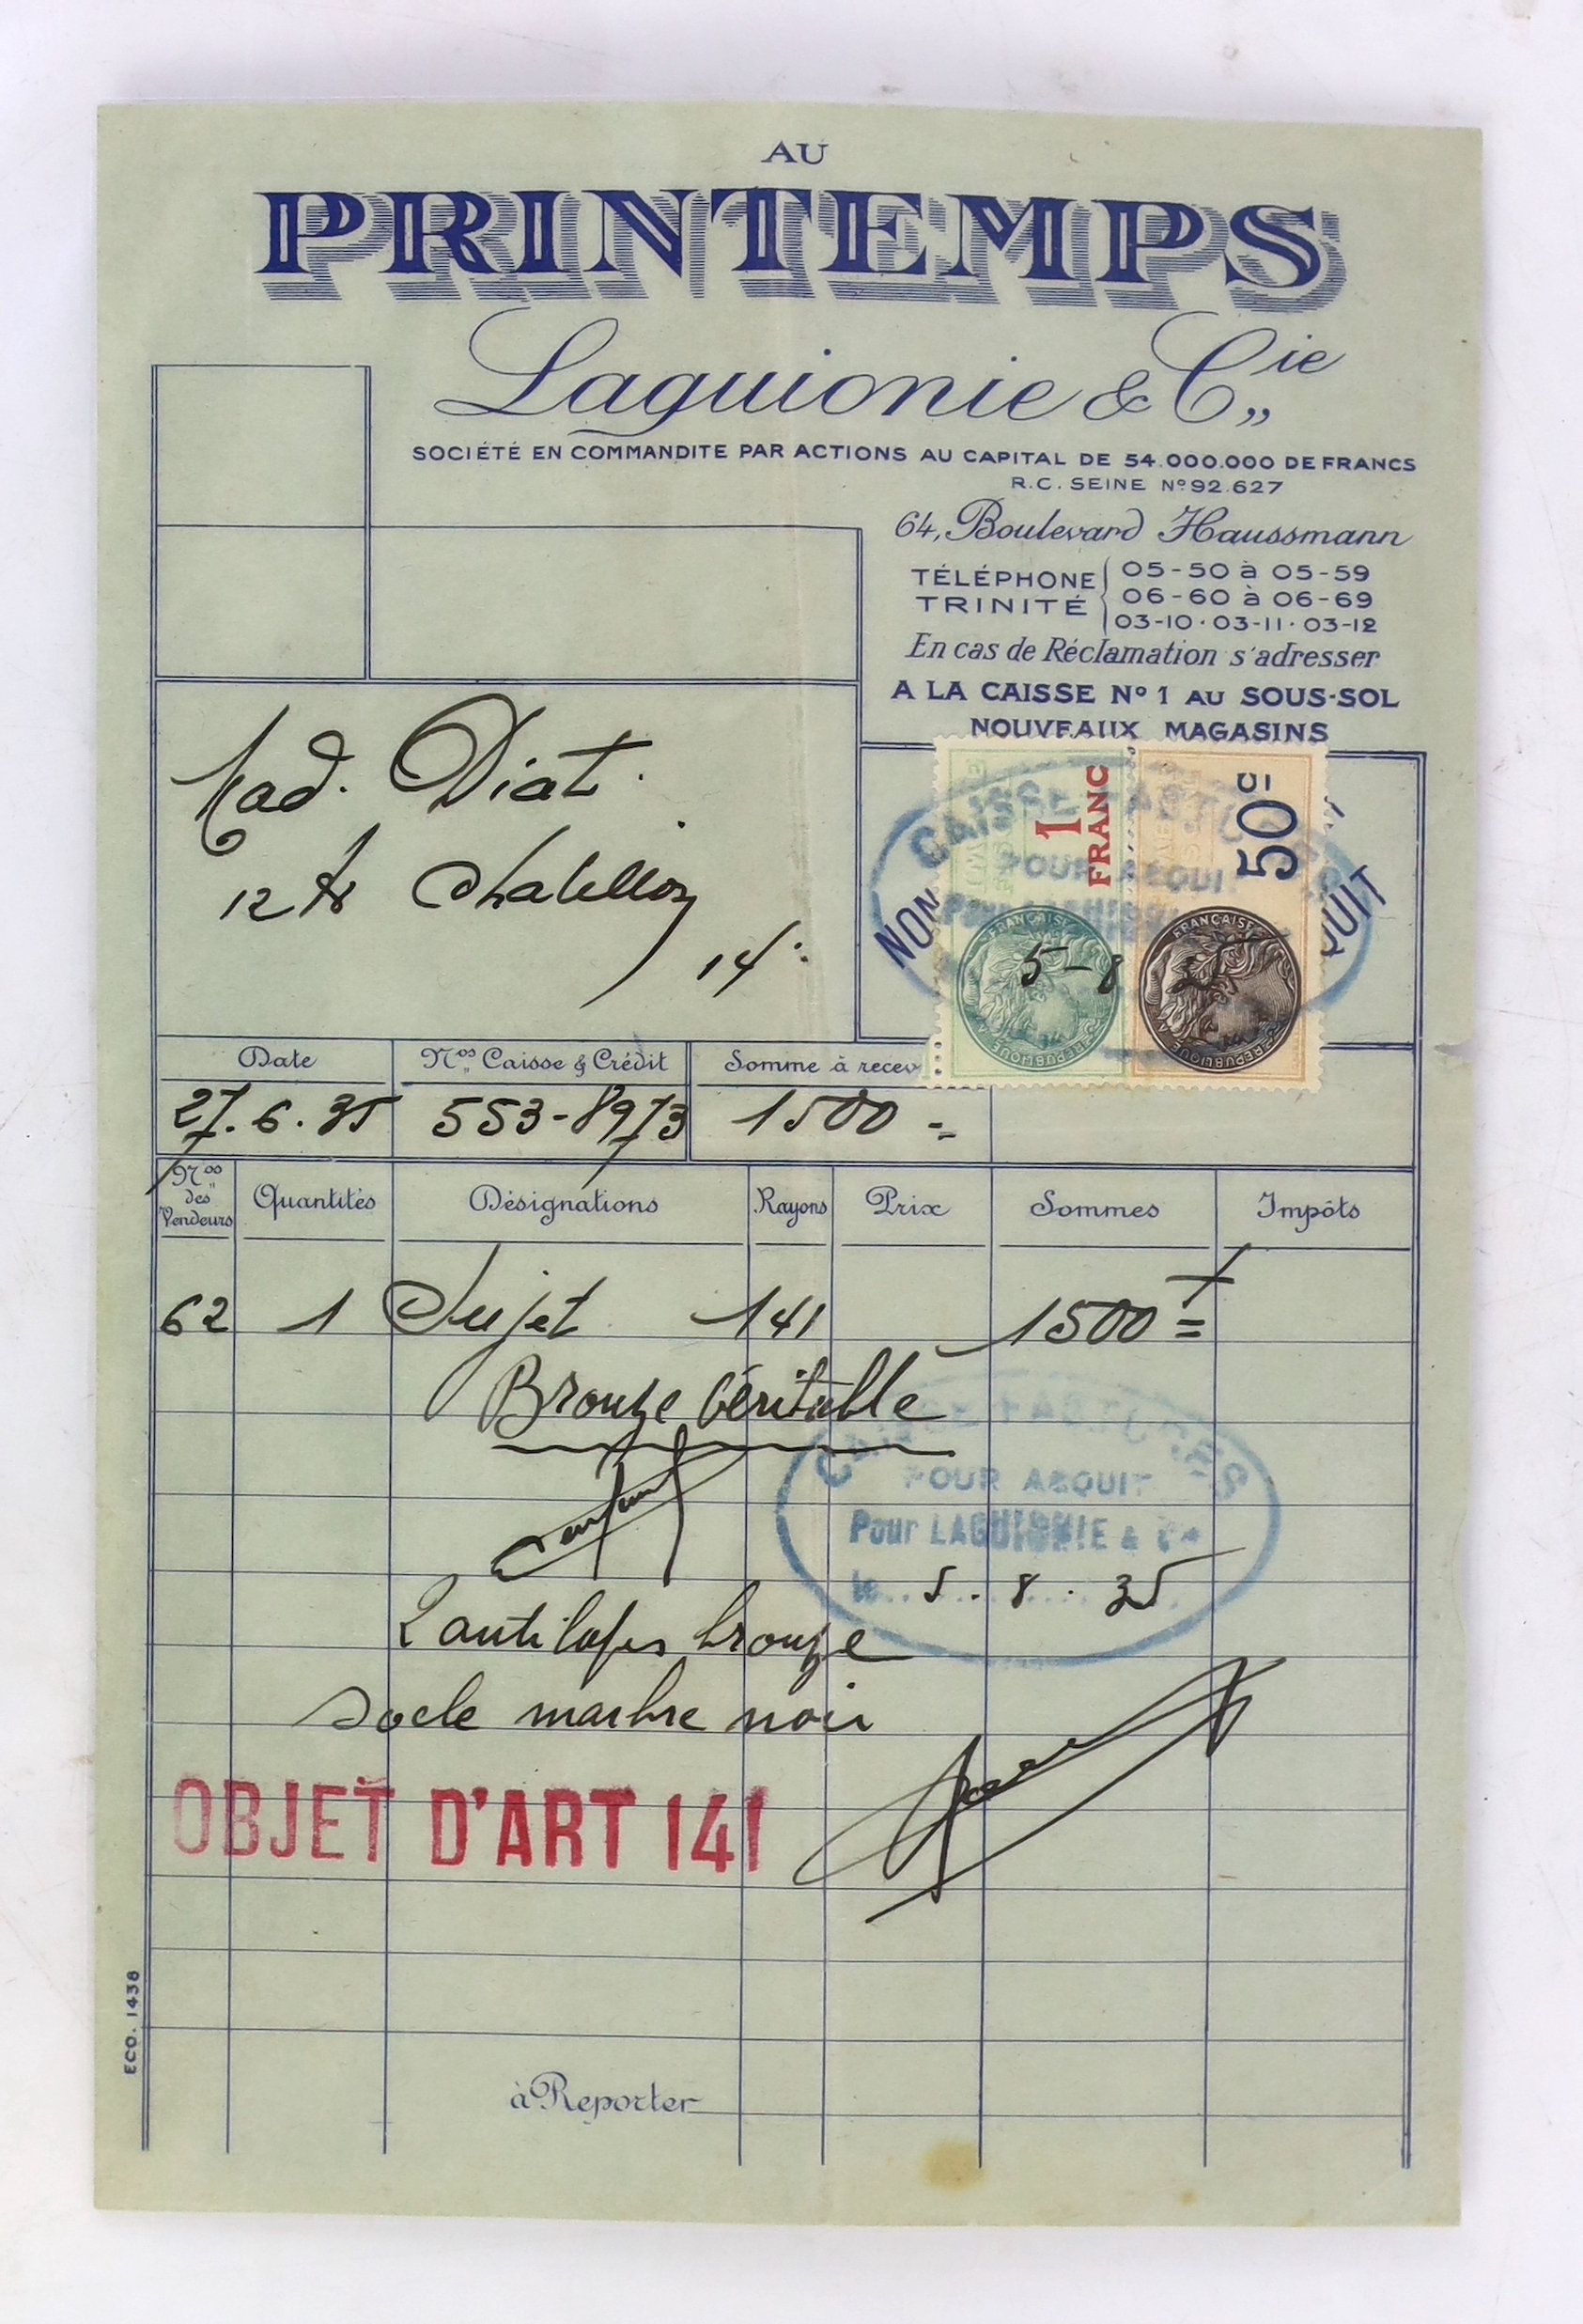 AU
PRINTEMPS
Laguionie & Cie
SOCIÉTÉ EN COMMANDITE PAR ACTIONS AU CAPITAL DE 54.000.000 DE FRANCS
R.C. SEINE No 92.627
64, Boulevard Haussmann
TÉLÉPHONE TRINITÉ
05-50 à 05-59
06-60 à 06-69
03-10 · 03-11 · 03-12
En cas de Réclamation s'adresser
A LA CAISSE No 1 AU SOUS-SOL
NOUVEAUX MAGASINS
Mad. Diat.
12 Chatillon
14
NON
QUIT
CAISSE
POUR ACQUIT
1 FRANC
50c
FRANÇAISE
RÉPUBLIQUE
FRANÇAISE
RÉPUBLIQUE
5-8
Date Nos Caisse & Crédit Somme à recev
27.6.35 553-8973 1500 =
Nos des Vendeurs Quantités Désignations Rayons Prix Sommes Impôts
62 1 Sujet 141 1500 =
Bronze Véritable
CAISSE FACTURES
POUR ACQUIT
Pour LAGUIONIE & Cie
le 5.8.35
2 antilopes bronze
socle marbre noir
OBJET D'ART 141
à Reporter
ECO. 1438